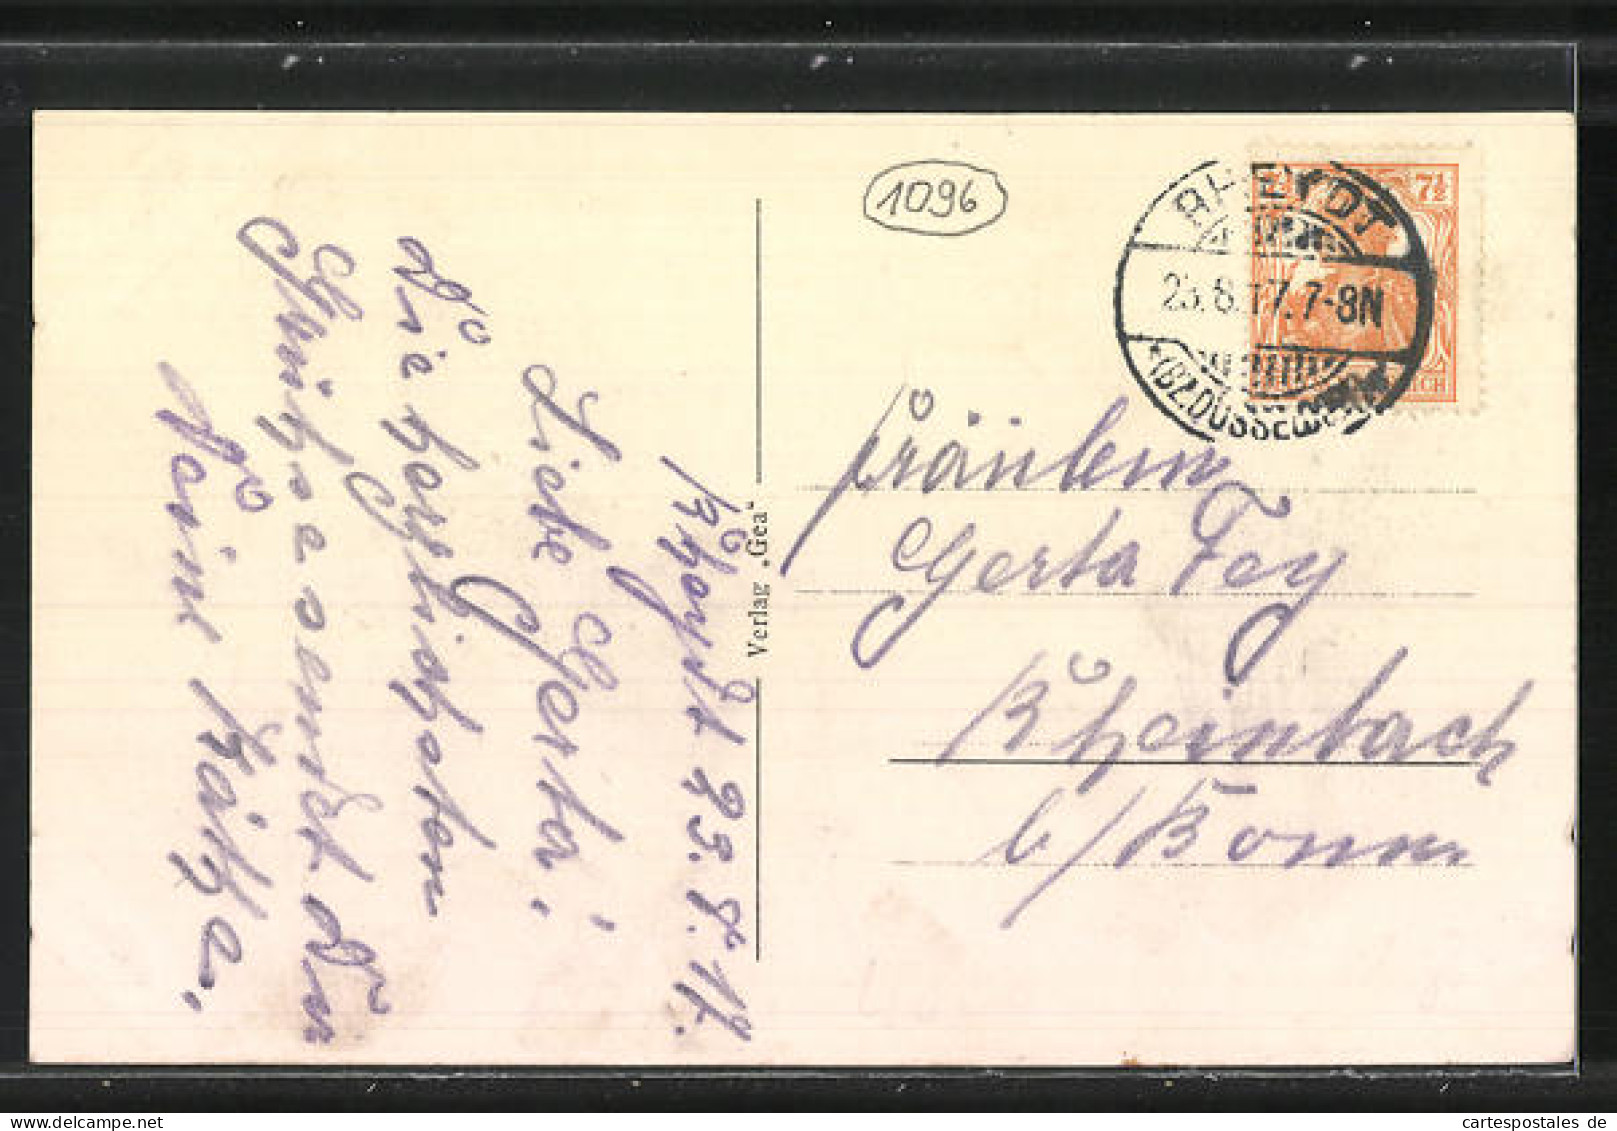 Rheydt 23.8.17.
Liebe Gerta!
Die herzlichsten
Grüße sendet Dir
Deine Käthe.
Verlag „Gea“
1096
RHEYDT
23.8.17.7-8N
*(BZ.DÜSSELDORF)*
7½
Fräulein
Gerta Fey
Rheinbach
b/Bonn
cartespostales.de